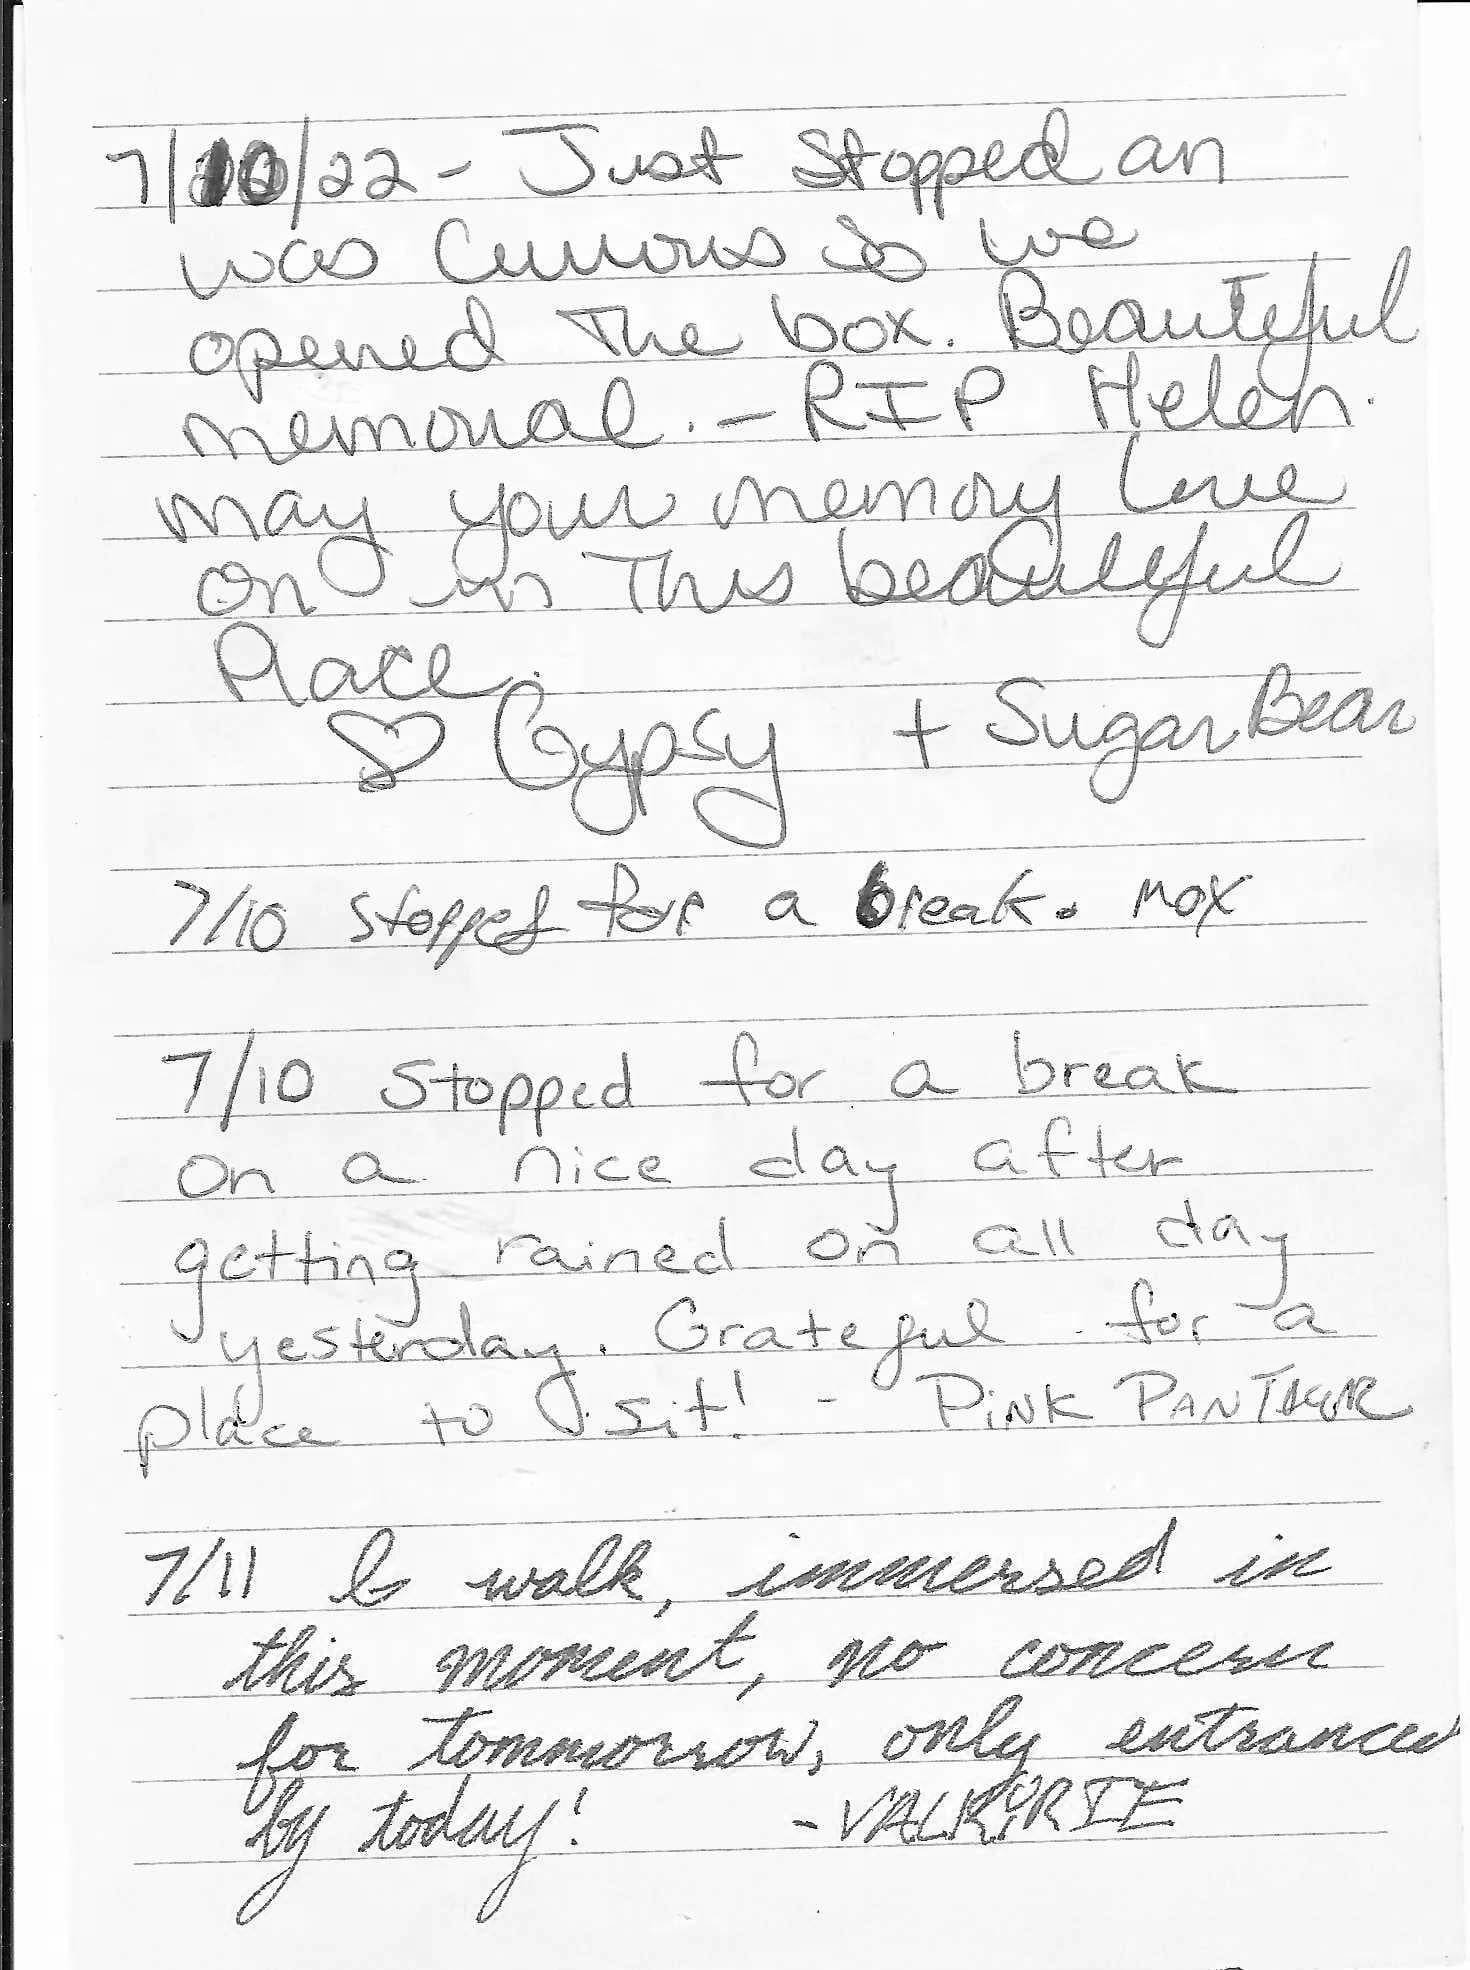 7/10/22 - Just Stopped an
was Curious so we
opened The box. Beautiful
memorial. - RIP Helen.
may your memory Live
on in This beautiful
Place.
♡ Gypsy + Sugar Bear
7/10 stopped for a break. MOX
7/10 Stopped for a break
on a nice day after
getting rained on all day
yesterday. Grateful for a
place to sit! - PiNK PANTHER
7/11 I walk, immersed in
this moment, no concern
for tommorrow, only entranced
by today! - VALKYRIE